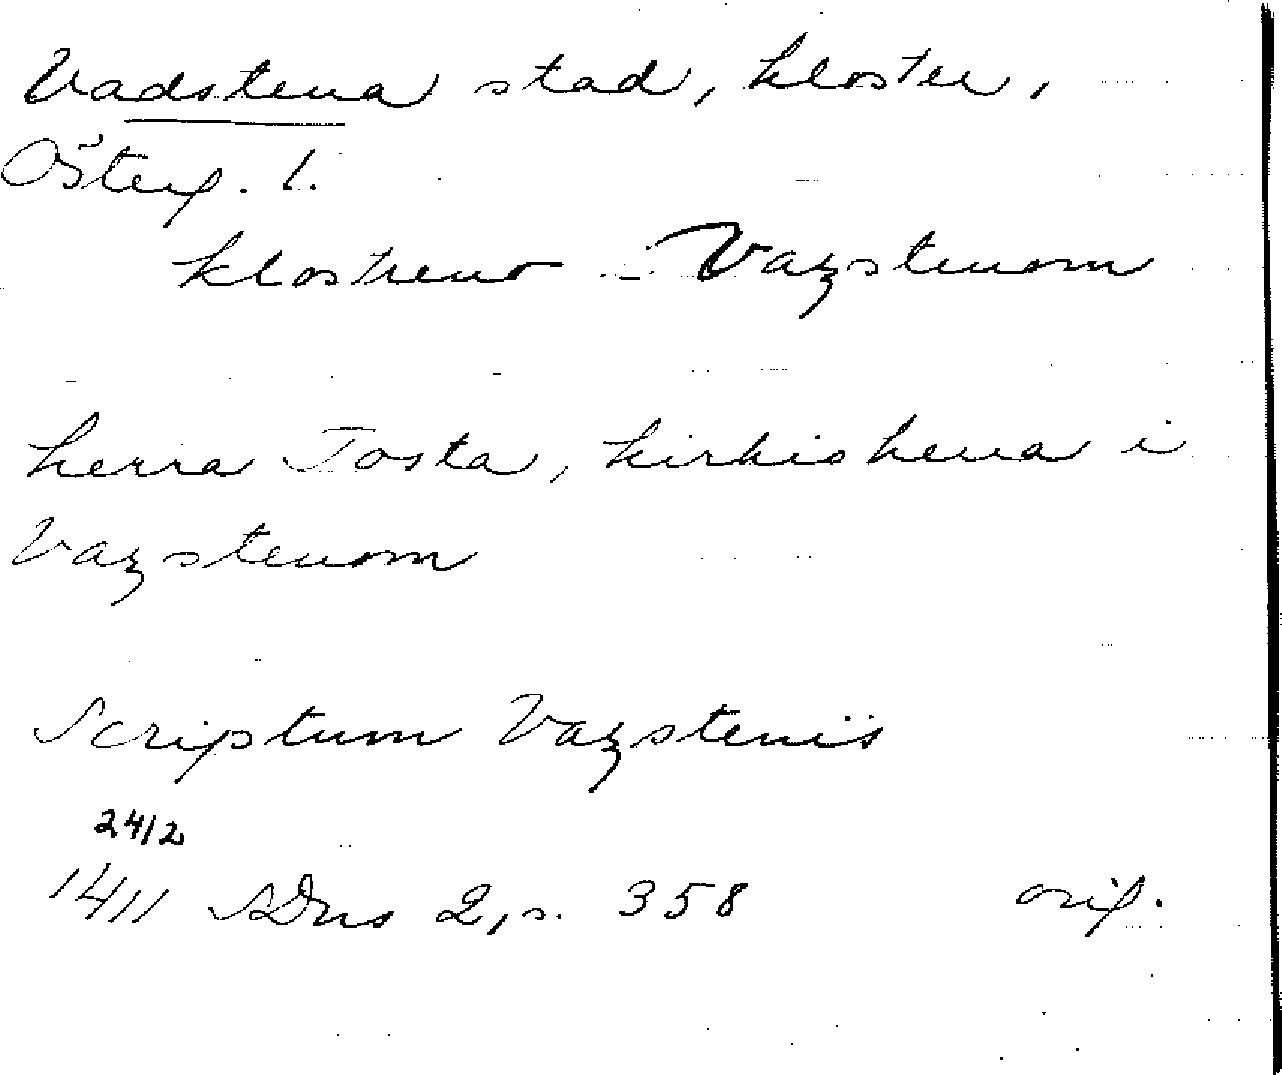 Vadstena stad, kloster,
Österg. l.
klostreno i Vazstenom
herra Tosta, kirkioherra i
Vazstenom
Scriptum Vazstenis
24/2
1411 SDns 2, s. 358 orig.